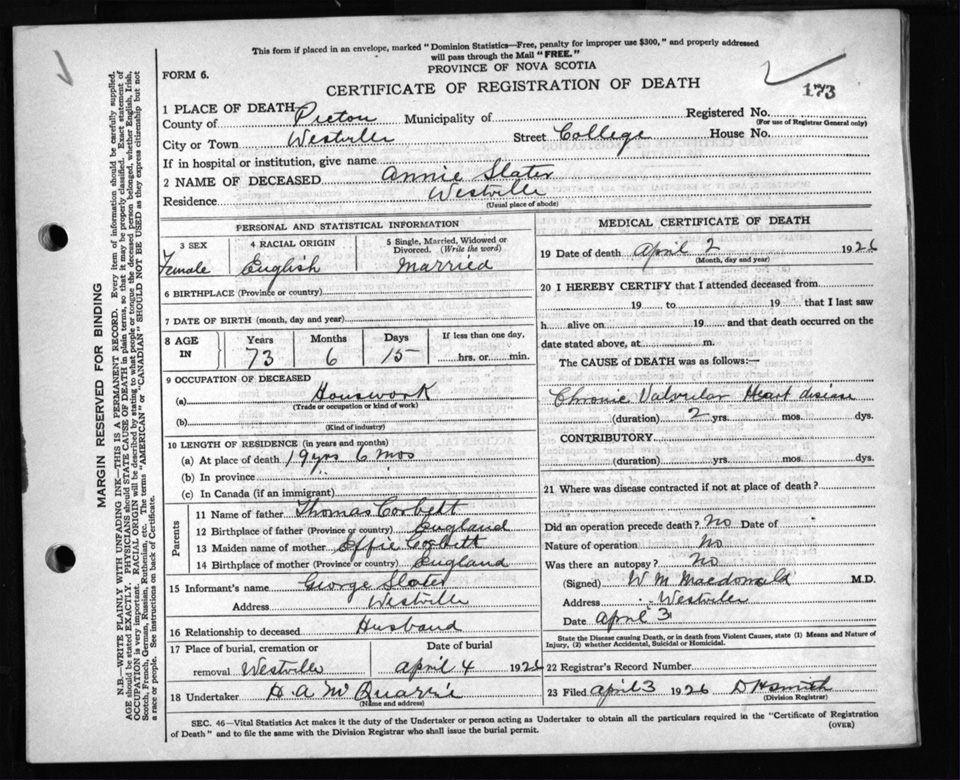 This form if placed in an envelope, marked "Dominion Statistics—Free, penalty for improper use $300," and properly addressed
will pass through the Mail "FREE."
PROVINCE OF NOVA SCOTIA
FORM 6.
CERTIFICATE OF REGISTRATION OF DEATH
173
1 PLACE OF DEATH
County of Pictou Municipality of Registered No.
(For use of Registrar General only)
City or Town Westville Street College House No.
If in hospital or institution, give name
2 NAME OF DECEASED Annie Slater
Residence Westville
(Usual place of abode)
PERSONAL AND STATISTICAL INFORMATION
3 SEX 4 RACIAL ORIGIN 5 Single, Married, Widowed or Divorced. (Write the word)
Female English Married
6 BIRTHPLACE (Province or country)
7 DATE OF BIRTH (month, day and year)
8 AGE IN Years Months Days If less than one day,
73 6 15 hrs. or min.
9 OCCUPATION OF DECEASED
(a) Housework
(Trade or occupation or kind of work)
(b)
(Kind of industry)
10 LENGTH OF RESIDENCE (in years and months)
(a) At place of death 19 yrs 6 mos
(b) In province "
(c) In Canada (if an immigrant)
Parents
11 Name of father Thomas Corbett
12 Birthplace of father (Province or country) England
13 Maiden name of mother Effie Corbett
14 Birthplace of mother (Province or country) England
15 Informant's name George Slater
Address Westville
16 Relationship to deceased Husband
17 Place of burial, cremation or Date of burial
removal Westville April 4 1926
18 Undertaker H A McQuarrie
(Name and address)
MEDICAL CERTIFICATE OF DEATH
19 Date of death April 2 1926
(Month, day and year)
20 I HEREBY CERTIFY that I attended deceased from
19 to 19 that I last saw
h alive on 19 and that death occurred on the
date stated above, at m.
The CAUSE of DEATH was as follows:—
Chronic Valvular Heart disease
(duration) 2 yrs. mos. dys.
CONTRIBUTORY
(duration) yrs. mos. dys.
21 Where was disease contracted if not at place of death?
Did an operation precede death? No Date of
Nature of operation No
Was there an autopsy? No
(Signed) W M Macdonald M.D.
Address Westville
Date April 3
State the Disease causing Death, or in death from Violent Causes, state (1) Means and Nature of
Injury, (2) whether Accidental, Suicidal or Homicidal.
22 Registrar's Record Number
23 Filed April 3 1926 D H Smith
(Division Registrar)
SEC. 46—Vital Statistics Act makes it the duty of the Undertaker or person acting as Undertaker to obtain all the particulars required in the "Certificate of Registration
of Death" and to file the same with the Division Registrar who shall issue the burial permit.
(OVER)
MARGIN RESERVED FOR BINDING
N.B.—WRITE PLAINLY WITH UNFADING INK—THIS IS A PERMANENT RECORD. Every item of information should be carefully supplied.
AGE should be stated EXACTLY. PHYSICIANS should STATE CAUSE OF DEATH in plain terms, so that it may be properly classified. Exact statement of
OCCUPATION is very important. RACIAL ORIGIN will be described by stating to what people or tongue the deceased person belonged, whether English, Irish,
Scotch, French, German, Russian, Ruthenian, etc. The terms "AMERICAN" or "CANADIAN" SHOULD NOT BE USED as they express citizenship but not
a race or people. See instructions on back of Certificate.